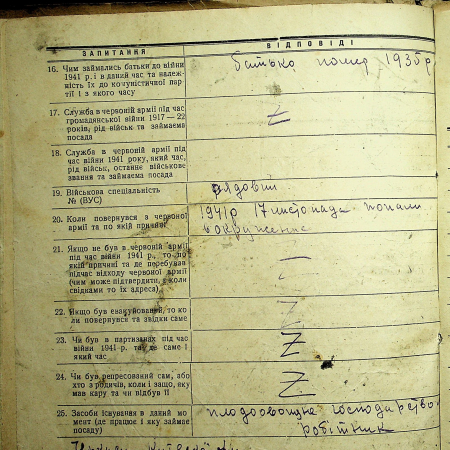 ЗАПИТАННЯ ВІДПОВІДІ
16. Чим займались батьки до війни
1941 р. і в даний час та належ-
ність їх до комуністичної пар-
тії і з якого часу
батько помер 1935 р
17. Служба в червоній армії під час
громадянської війни 1917—22
років, рід військ та займаєма
посада
Z
18. Служба в червоній армії під
час війни 1941 року, який час,
рід військ, останнє військове
звання та займаєма посада
19. Військова спеціальність
№ (ВУС)
рядовий
20. Коли повернувся з червоної
армії та по якій причині
1941р 17 листопада попали
в окружение
21. Якщо не був в червоній армії
під час війни 1941 р., то по
якій причині та де перебував
підчас відходу червоної армії
(чим може підтвердити, коли
свідками то їх адреса)
—
22. Якщо був евакуйований, то ко-
ли повернувся та звідки саме
Z
23. Чи був в партизанах під час
війни 1941 р. та де саме і
який час
Z
24. Чи був репресований сам, або
хто з родичів, коли і защо, яку
мав кару та чи відбув її
Z
25. Засоби існування в даний мо-
мент (де працює і яку займає
посаду)
плодоовощне господарство
робітник